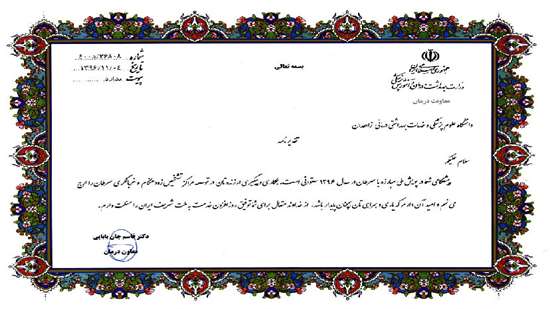 شماره ۴۰۰/۲۶۸۰۸
بسمه تعالی
تاریخ ۱۳۹۶/۱۱/۰۴
جمهوری اسلامی ایران
پیوست ندارد
وزارت بهداشت، درمان و آموزش پزشکی
معاونت درمان
دانشگاه علوم پزشکی و خدمات بهداشتی درمانی زاهدان
تقدیرنامه
سلام علیکم
شما در پویش ملی مبارزه با سرطان در سال ۱۳۹۶ ستودنی است. همکاری و پیگیری ارزنده تان در توسعه مراکز تشخیص زودهنگام و غربالگری سرطان را ارج
می نهم و امید آن دارم که یاری و همراهی تان همچنان پایدار باشد. از خداوند متعال برای شما توفیق روزافزون خدمت به ملت شریف ایران را مسئلت دارم.
دکتر قاسم جان بابایی
معاون درمان